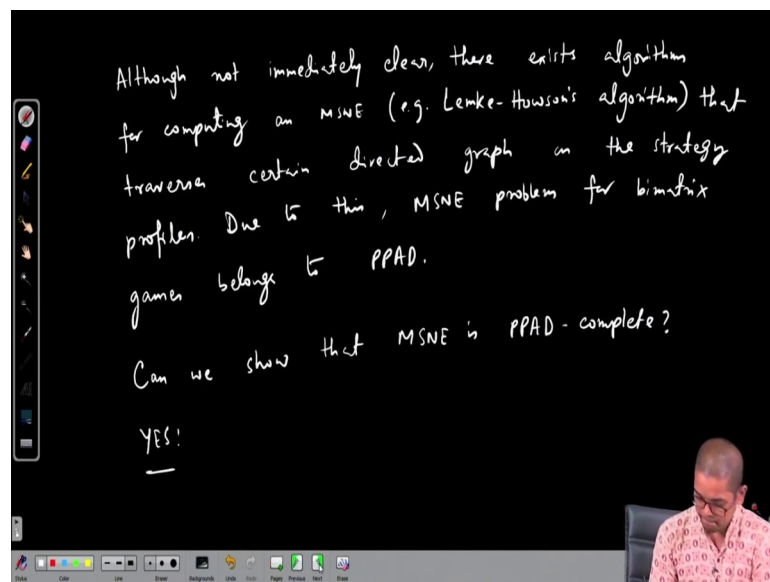 Although not immediately clear, there exists algorithm
for computing an MSNE (e.g. Lemke-Howson's algorithm) that
traverses certain directed graph on the strategy
profiles. Due to this, MSNE problem for bimatrix
games belongs to PPAD.
Can we show that MSNE is PPAD-complete?
YES!
Stylus Color Line Eraser Backgrounds Undo Redo Pages Previous Next Erase